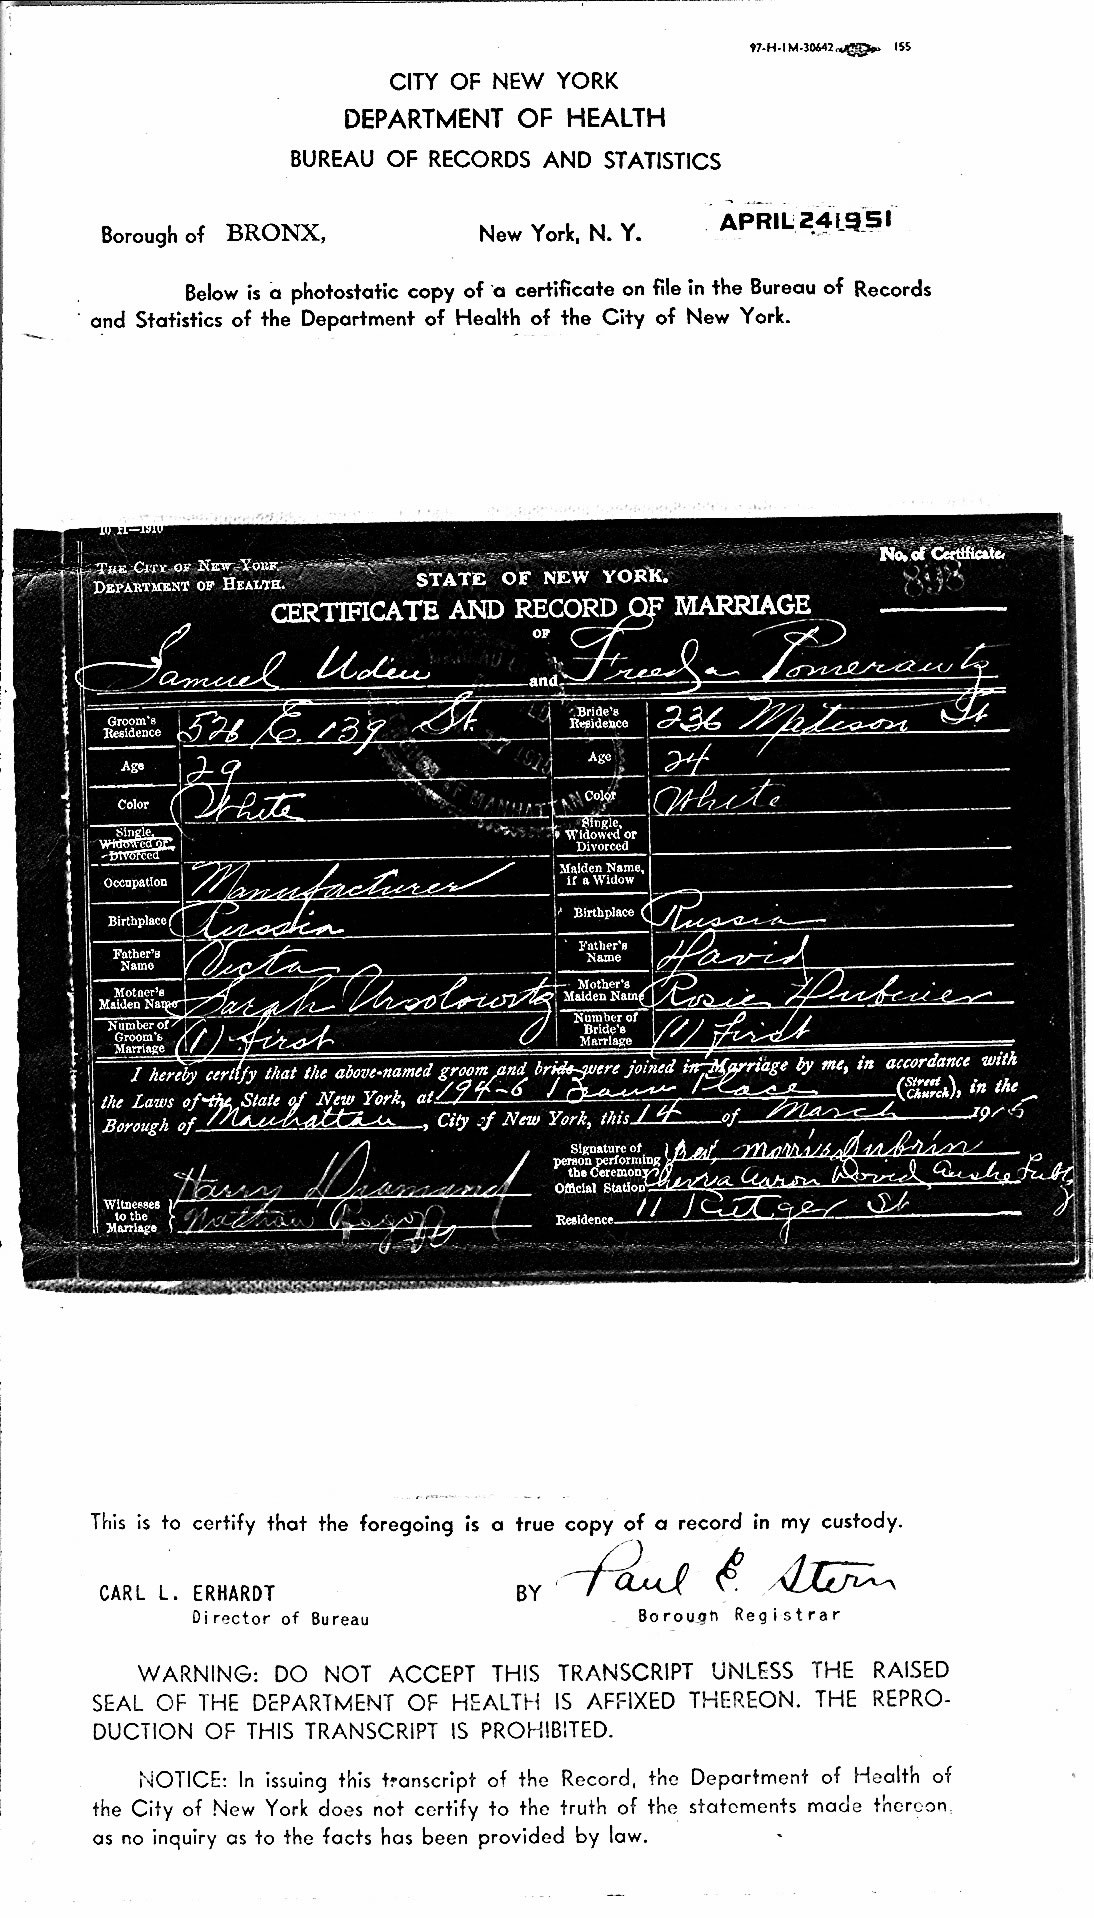 97-H-1M-30642 155
CITY OF NEW YORK
DEPARTMENT OF HEALTH
BUREAU OF RECORDS AND STATISTICS
Borough of BRONX, New York, N. Y. APRIL 24 1951
Below is a photostatic copy of a certificate on file in the Bureau of Records
and Statistics of the Department of Health of the City of New York.
10 H—1910
THE CITY OF NEW YORK.
DEPARTMENT OF HEALTH.
STATE OF NEW YORK.
No. of Certificate.
898
CERTIFICATE AND RECORD OF MARRIAGE
OF
Samuel Uden and Freeda Pomerantz
Groom's Residence 526 E. 139 St. Bride's Residence 236 Madison St
Age 29 Age 24
Color White Color White
Single, Widowed or Divorced Single, Widowed or Divorced
Occupation Manufacturer Maiden Name, if a Widow
Birthplace Russia Birthplace Russia
Father's Name Victor Father's Name David
Mother's Maiden Name Sarah Mother's Maiden Name Rosie
Number of Groom's Marriage (1) first Number of Bride's Marriage (1) first
I hereby certify that the above-named groom and bride were joined in Marriage by me, in accordance with
the Laws of the State of New York, at 194-6 Place (Street Church), in the
Borough of Manhattan, City of New York, this 14 of March 19
Witnesses to the Marriage Harry Diamond
Nathan
Signature of person performing the Ceremony Rev. Morris Dubrin
Official Station Chevra Aaron Dovid
Residence 11 Rutger St
This is to certify that the foregoing is a true copy of a record in my custody.
CARL L. ERHARDT BY Paul E. Stern
Director of Bureau Borough Registrar
WARNING: DO NOT ACCEPT THIS TRANSCRIPT UNLESS THE RAISED
SEAL OF THE DEPARTMENT OF HEALTH IS AFFIXED THEREON. THE REPRO-
DUCTION OF THIS TRANSCRIPT IS PROHIBITED.
NOTICE: In issuing this transcript of the Record, the Department of Health of
the City of New York does not certify to the truth of the statements made thereon,
as no inquiry as to the facts has been provided by law.